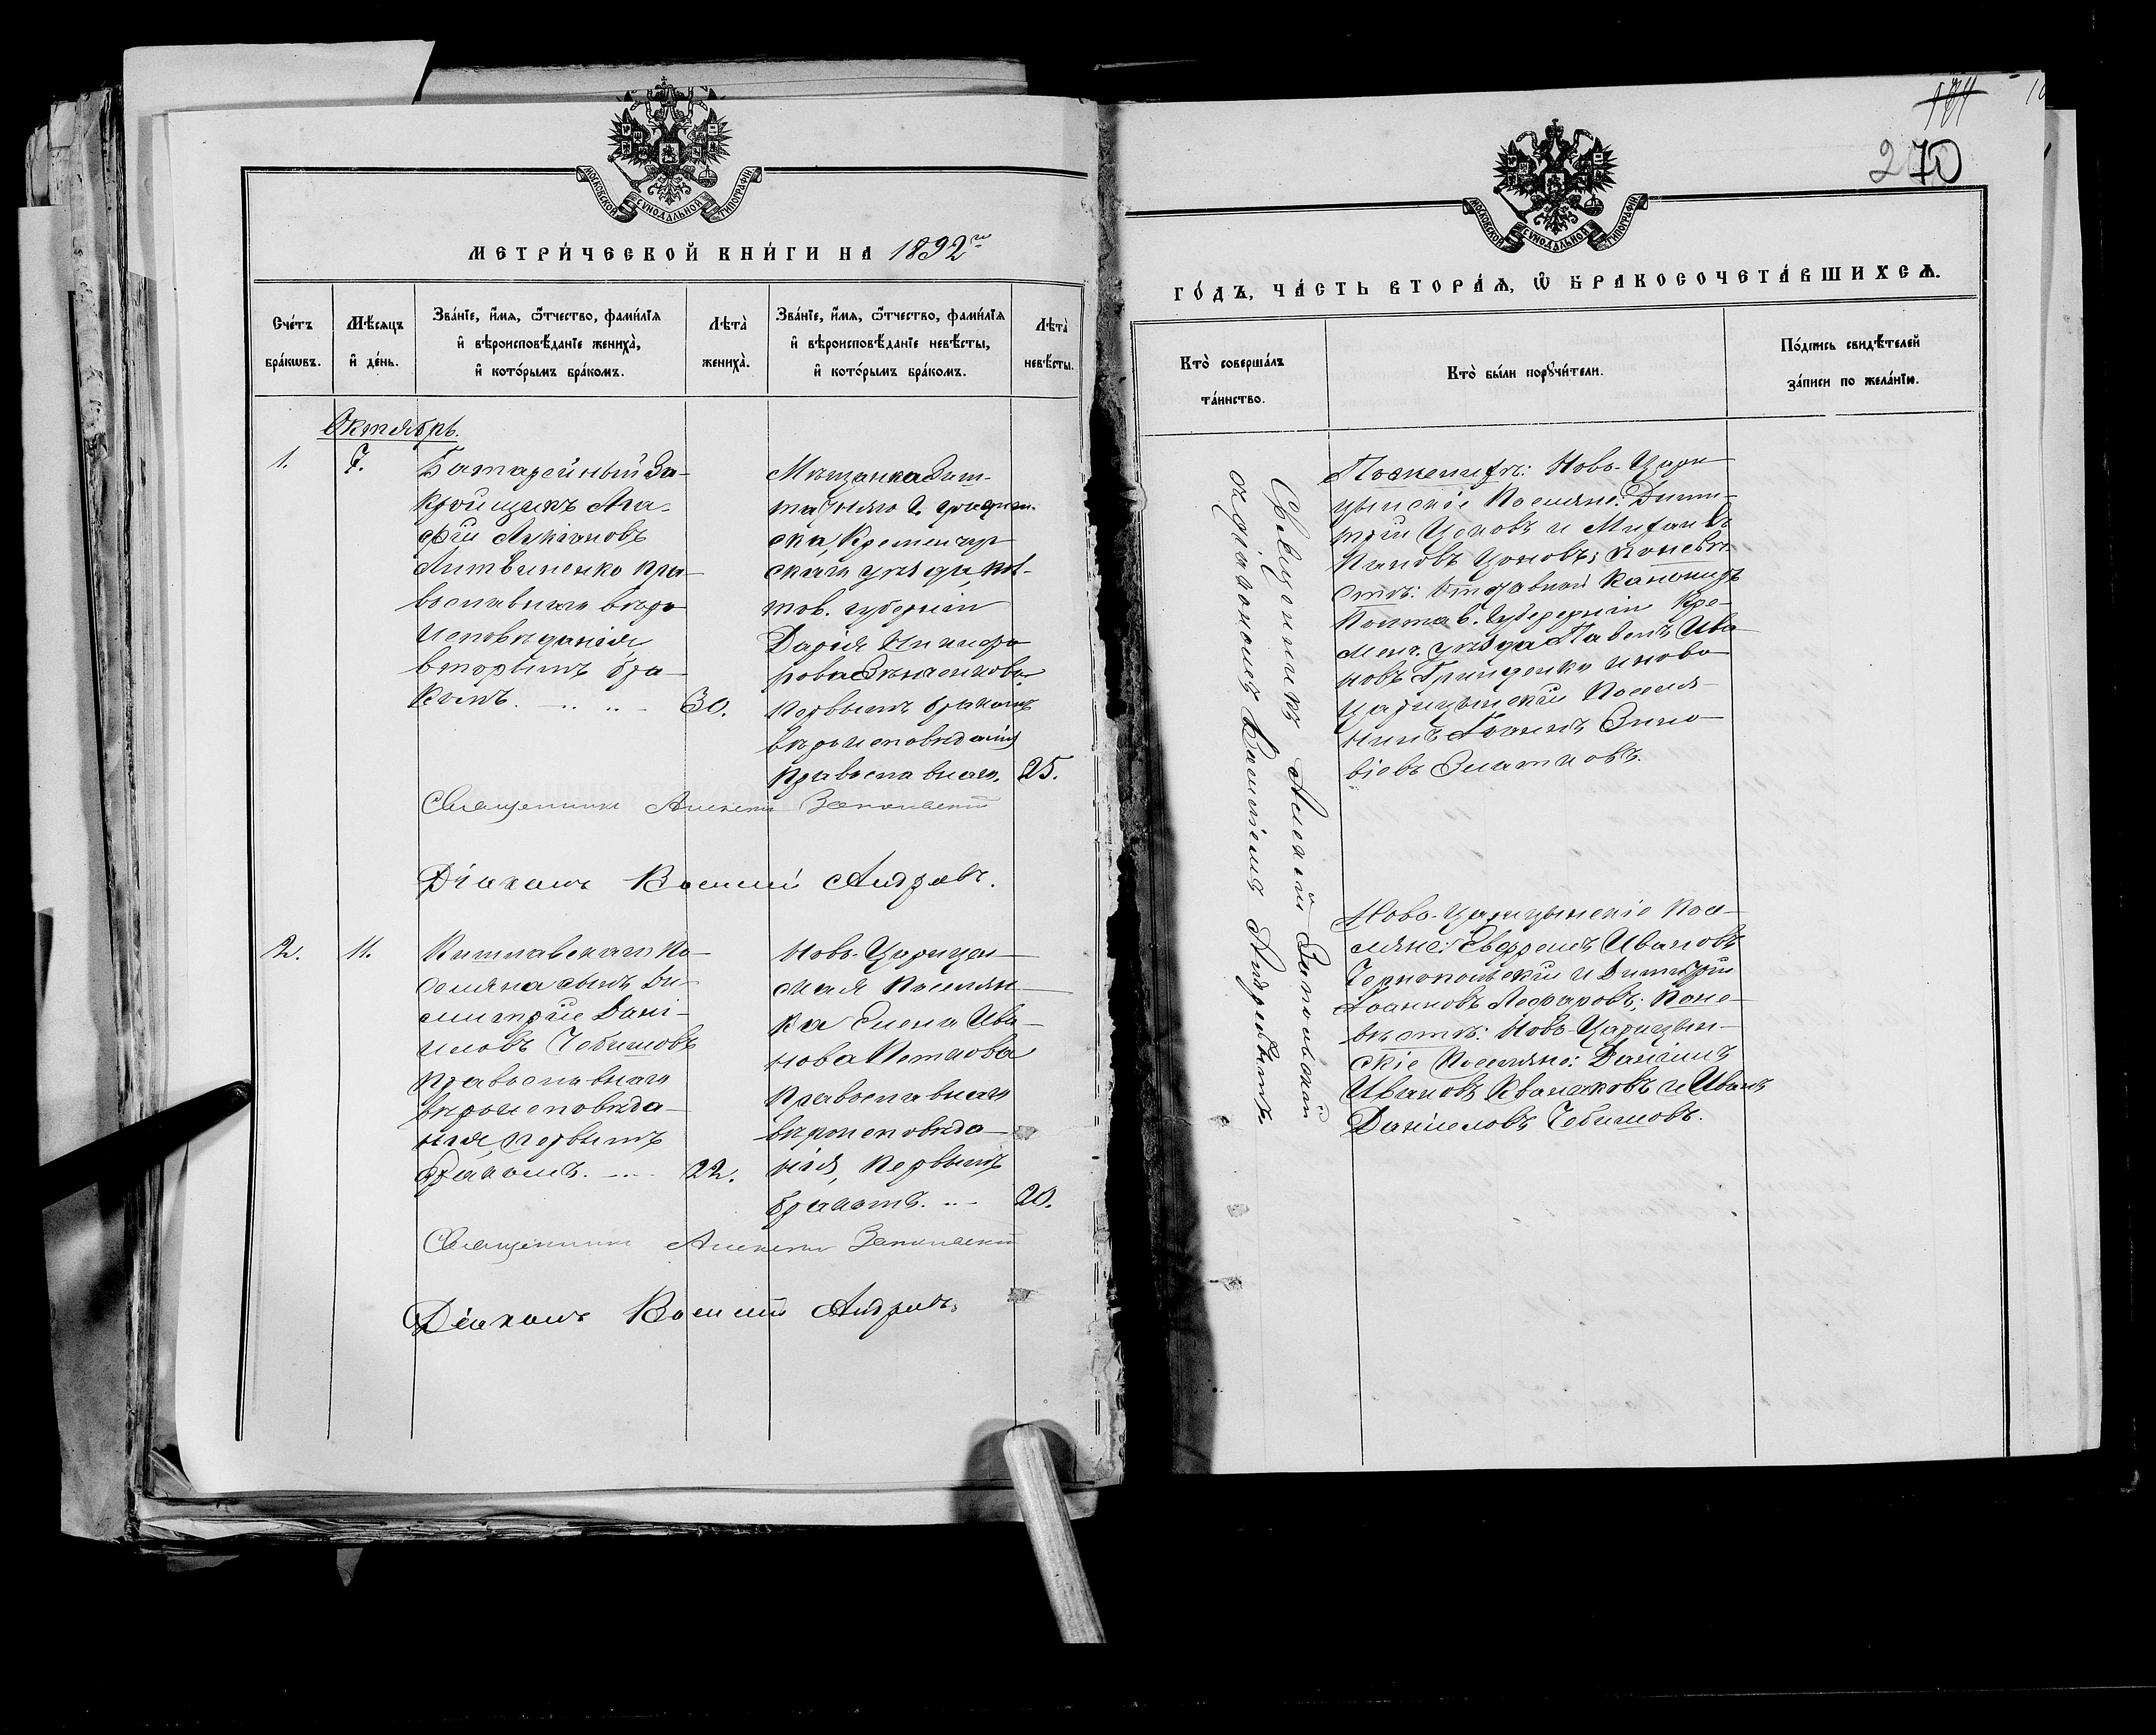 МОСКОВСКОЙ СѴНОДАЛЬНОЙ ТИПОГРАФІИ
МЕТРИ́ЧЕСКОЙ КНИ́ГИ НА 1892 го
Сче́тъ
бра́кѡвъ.
Мѣ́сяцъ
и҆ де́нь.
Зва́нїе, и҆́мя, ѻ҆́тчество, фами́лїя
и҆ вѣроисповѣ́данїе жениха̀,
и҆ кото́рымъ бра́комъ.
Лѣта̀
жениха̀.
Зва́нїе, и҆́мя, ѻ҆́тчество, фами́лїя
и҆ вѣроисповѣ́данїе невѣ́сты,
и҆ кото́рымъ бра́комъ.
Лѣта̀
невѣ́сты.
Октябрь.
1.
7.
Батарейный За-
кройщикъ Ага-
фій Лукіановъ
Литвиненко пра-
вославнаго вѣро-
исповѣданія
вторымъ бра-
комъ.
30.
Мѣщанка
скаго уѣзда, Пол-
тов. губерніи
Дарія
первымъ бракомъ
вѣроисповѣданія
православнаго.
25.
Священникъ Алексій
Діаконъ Василій Андреевъ.
2.
11.
по-
селянина сынъ Ди-
митрій Дані-
иловъ Чебишовъ
православнаго
вѣроисповѣда-
нія, первымъ
бракомъ.
22.
Ново-Царицын-
ская поселян-
ка Елена Ива-
нова
православнаго
вѣроисповѣда-
нія, первымъ
бракомъ.
20.
Священникъ Алексій
Діаконъ Василій Андреевъ.
270
ГО́ДЪ, ЧА́СТЬ ВТОРА́Я, Ѿ БРАКОСОЧЕТА́ВШИХСЯ.
Кто̀ соверша́лъ
та́инство.
Кто̀ бы́ли порꙋчи́тели.
По́дпись свидѣ́телей
за́писи по жела́нїю.
Священникъ Алексій
съ діакономъ Василіемъ Андреевымъ.
По женихѣ: Ново-Цари-
цынскіе поселяне: Дими-
трій Цоновъ и Михаилъ
Цоновъ; по невѣ-
стѣ: отставной канониръ
Полтав. губерніи Кре-
мен. уѣзда Павелъ Ива-
новъ Гриценко и Ново-
царицынскій поселя-
нинъ Іоаннъ Зино-
віевъ Златиовъ.
Ново-Царицынскіе посе-
ляне: Евфремъ Ивановъ
и Димитрій
Іоанновъ; по не-
вѣстѣ: Ново-Царицын-
скіе поселяне: Даніилъ
Ивановъ и Иванъ
Данииловъ Чебишовъ.